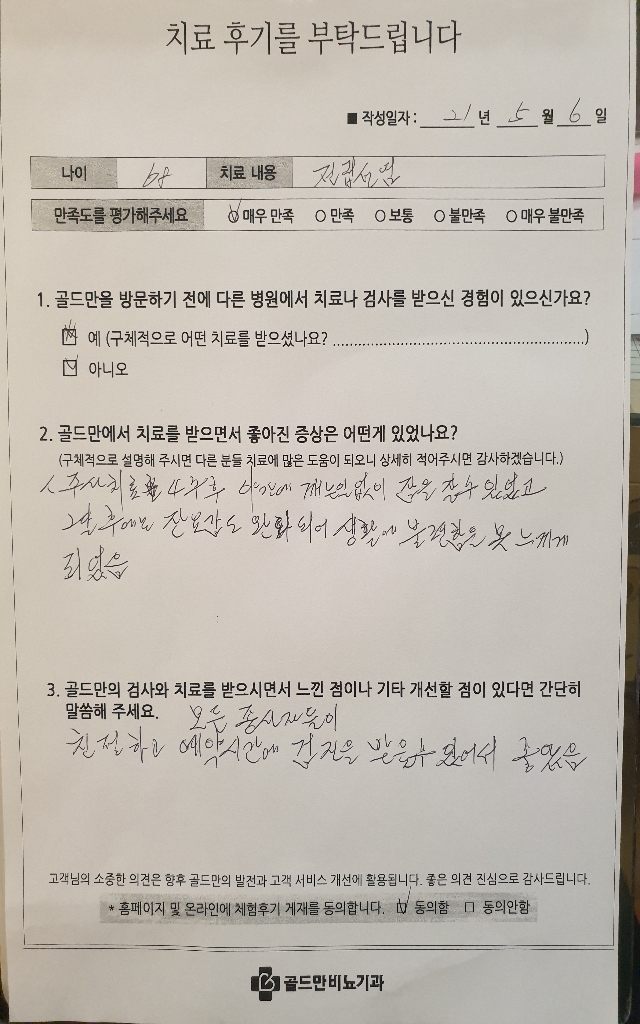 치료 후기를 부탁드립니다
■ 작성일자 : 21 년 5 월 6 일
나이 68 치료 내용 전립선염
만족도를 평가해주세요 매우 만족 ○ 만족 ○ 보통 ○ 불만족 ○ 매우 불만족
1. 골드만을 방문하기 전에 다른 병원에서 치료나 검사를 받으신 경험이 있으신가요?
예 (구체적으로 어떤 치료를 받으셨나요? ........................................................)
아니오
2. 골드만에서 치료를 받으면서 좋아진 증상은 어떤게 있었나요?
(구체적으로 설명해 주시면 다른 분들 치료에 많은 도움이 되오니 상세히 적어주시면 감사하겠습니다.)
주사치료 4주후 깨는일없이 잠을 잘수 있었고
그 후에도 잔뇨감도 완화되어 생활에 불편함을 못 느끼게
되었음
3. 골드만의 검사와 치료를 받으시면서 느낀 점이나 기타 개선할 점이 있다면 간단히
말씀해 주세요. 모든 종사자들이
친절하고 예약시간에 검진을 받을수 있어서 좋았음
고객님의 소중한 의견은 향후 골드만의 발전과 고객 서비스 개선에 활용됩니다. 좋은 의견 진심으로 감사드립니다.
* 홈페이지 및 온라인에 체험후기 게재를 동의합니다. 동의함 □ 동의안함
골드만비뇨기과